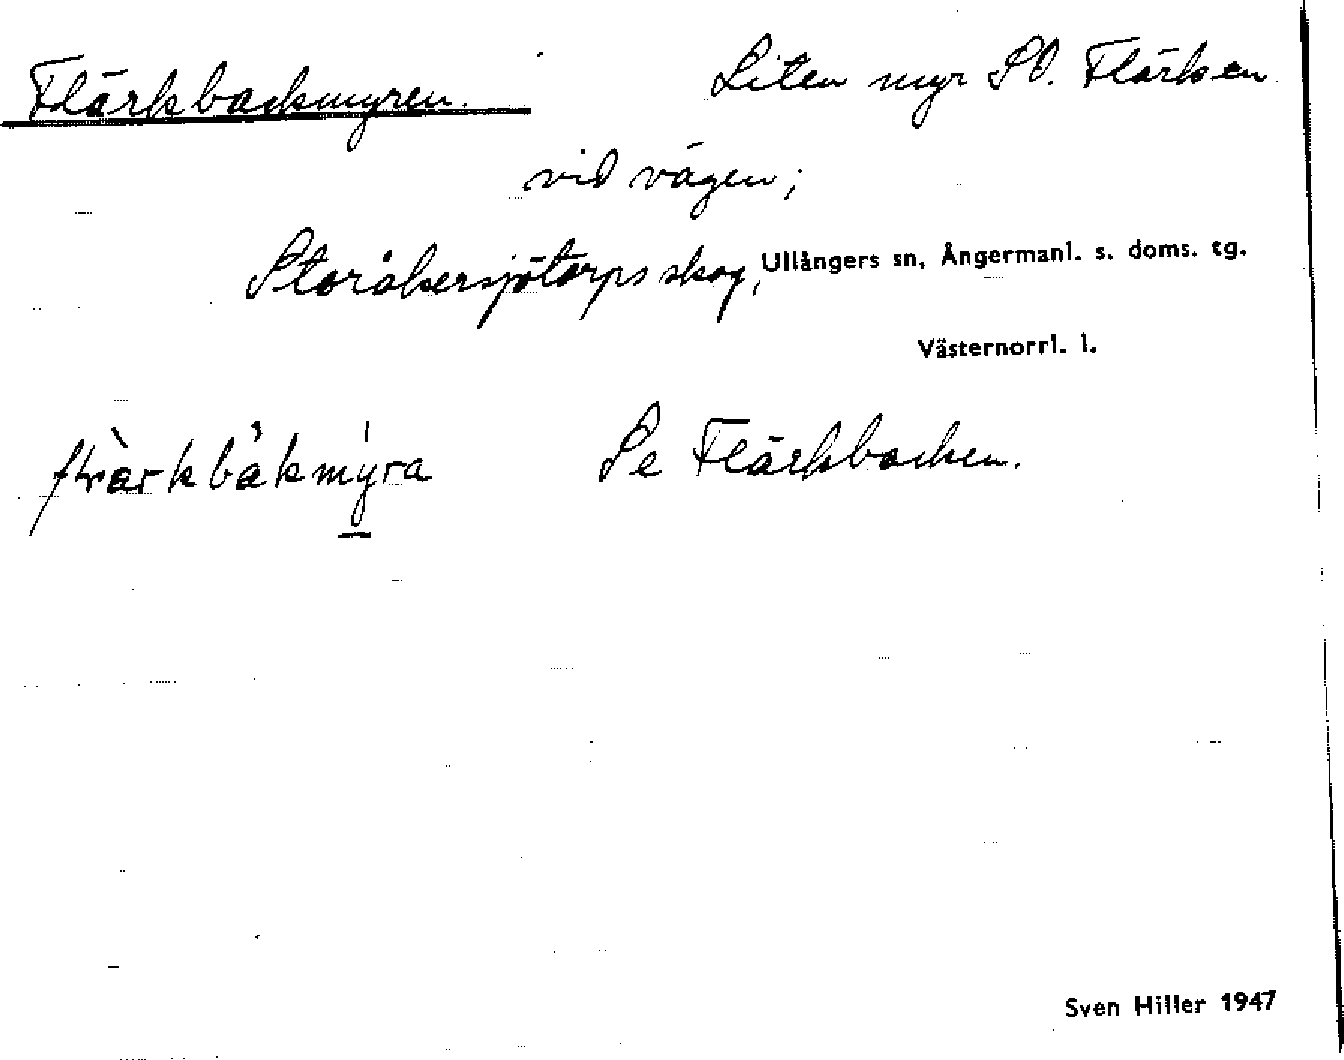 Flärkbackmyren.
Liten myr SO. Flärken
vid vägen;
Storåkersjötorps skog, Ullångers sn, Ångermanl. s. doms. tg.
Västernorrl. l.
Se Flärkbacken.
Sven Hiller 1947